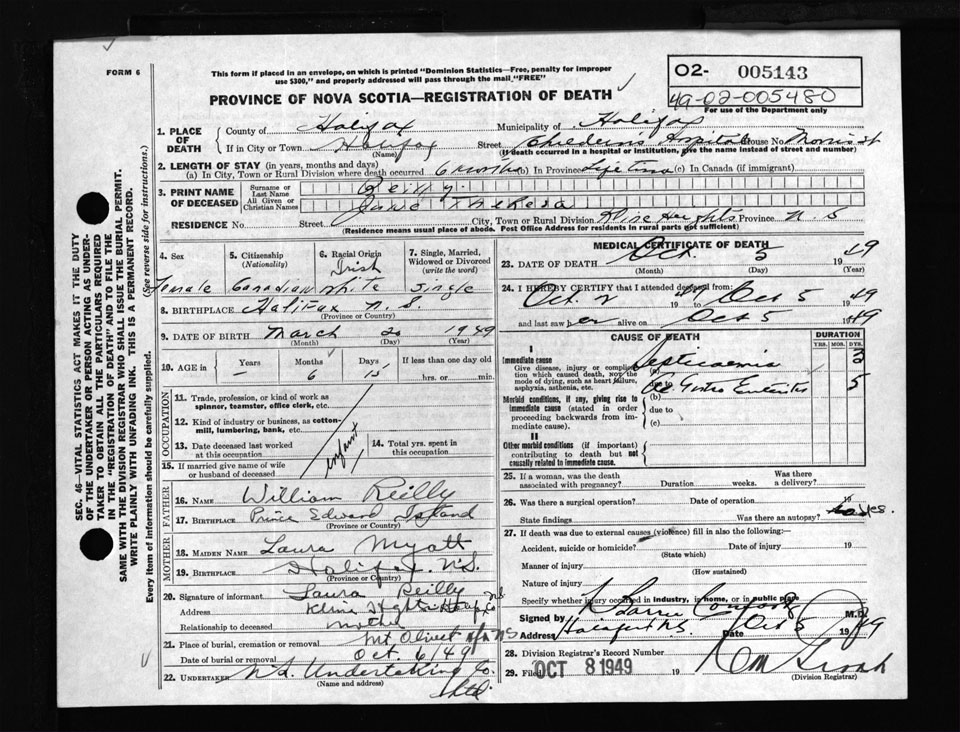 FORM 6
This form if placed in an envelope, on which is printed "Dominion Statistics—Free, penalty for improper
use $300," and properly addressed will pass through the mail "FREE"
O2- 005143
49-02-005480
For use of the Department only
PROVINCE OF NOVA SCOTIA—REGISTRATION OF DEATH
1. PLACE OF DEATH
County of Halifax Municipality of Halifax
If in City or Town Halifax Street Children's Hospital House No. Morris St
(Name) (If death occurred in a hospital or institution, give the name instead of street and number)
2. LENGTH OF STAY (in years, months and days)
(a) In City, Town or Rural Division where death occurred 6 months (b) In Province Lifetime (c) In Canada (if immigrant)
3. PRINT NAME OF DECEASED
Surname or Last Name Reilly
All Given or Christian Names Jane Theresa
RESIDENCE No. Street City, Town or Rural Division Kline Heights Province N.S
(Residence means usual place of abode. Post Office Address for residents in rural parts not sufficient)
4. Sex Female
5. Citizenship (Nationality) Canadian
6. Racial Origin Irish White
7. Single, Married, Widowed or Divorced (write the word) Single
8. BIRTHPLACE Halifax N.S.
(Province or Country)
9. DATE OF BIRTH March 20 1949
(Month) (Day) (Year)
10. AGE in Years — Months 6 Days 15 If less than one day old
hrs. or min.
OCCUPATION
11. Trade, profession, or kind of work as spinner, teamster, office clerk, etc.
12. Kind of industry or business, as cotton-mill, lumbering, bank, etc.
13. Date deceased last worked at this occupation
14. Total yrs. spent in this occupation
infant
15. If married give name of wife or husband of deceased
FATHER
16. NAME William Reilly
17. BIRTHPLACE Prince Edward Island
(Province or Country)
MOTHER
18. MAIDEN NAME Laura Myatt
19. BIRTHPLACE Halifax N.S.
(Province or Country)
20. Signature of informant Laura Reilly
Address Kline Hghts
Relationship to deceased mother
21. Place of burial, cremation or removal Mt Olivet
Date of burial or removal Oct. 6/49
22. UNDERTAKER N.S. Undertaking Co.
(Name and address)
MEDICAL CERTIFICATE OF DEATH
23. DATE OF DEATH Oct. 5 1949
(Month) (Day) (Year)
24. I HEREBY CERTIFY that I attended deceased from:
Oct. 2 1949 to Oct 5 1949
and last saw her alive on Oct 5 1949
CAUSE OF DEATH
DURATION
YRS. MOS. DYS.
I
Immediate cause
Give disease, injury or complication which caused death, not the mode of dying, such as heart failure, asphyxia, asthenia, etc.
(a) Septicaemia 3
due to
Morbid conditions, if any, giving rise to immediate cause (stated in order proceeding backwards from immediate cause).
(b) Ac Gastro Enteritis 5
due to
(c)
II
Other morbid conditions (if important) contributing to death but not causally related to immediate cause.
25. If a woman, was the death associated with pregnancy? Duration weeks. Was there a delivery?
26. Was there a surgical operation? Date of operation 19
State findings Was there an autopsy? yes.
27. If death was due to external causes (violence) fill in also the following:—
Accident, suicide or homicide? Date of injury 19
(State which)
Manner of injury
(How sustained)
Nature of injury
Specify whether injury occurred in industry, in home, or in public place
Signed by M.D.
Address Halifax N.S. Date Oct 5 1949
28. Division Registrar's Record Number
29. Filed OCT 8 1949 19
(Division Registrar)
SEC. 46—VITAL STATISTICS ACT MAKES IT THE DUTY
OF THE UNDERTAKER OR PERSON ACTING AS UNDER-
TAKER TO OBTAIN ALL THE PARTICULARS REQUIRED
IN THE "REGISTRATION OF DEATH" AND TO FILE THE
SAME WITH THE DIVISION REGISTRAR WHO SHALL ISSUE THE BURIAL PERMIT.
WRITE PLAINLY WITH UNFADING INK. THIS IS A PERMANENT RECORD.
Every item of information should be carefully supplied. (See reverse side for instructions.)